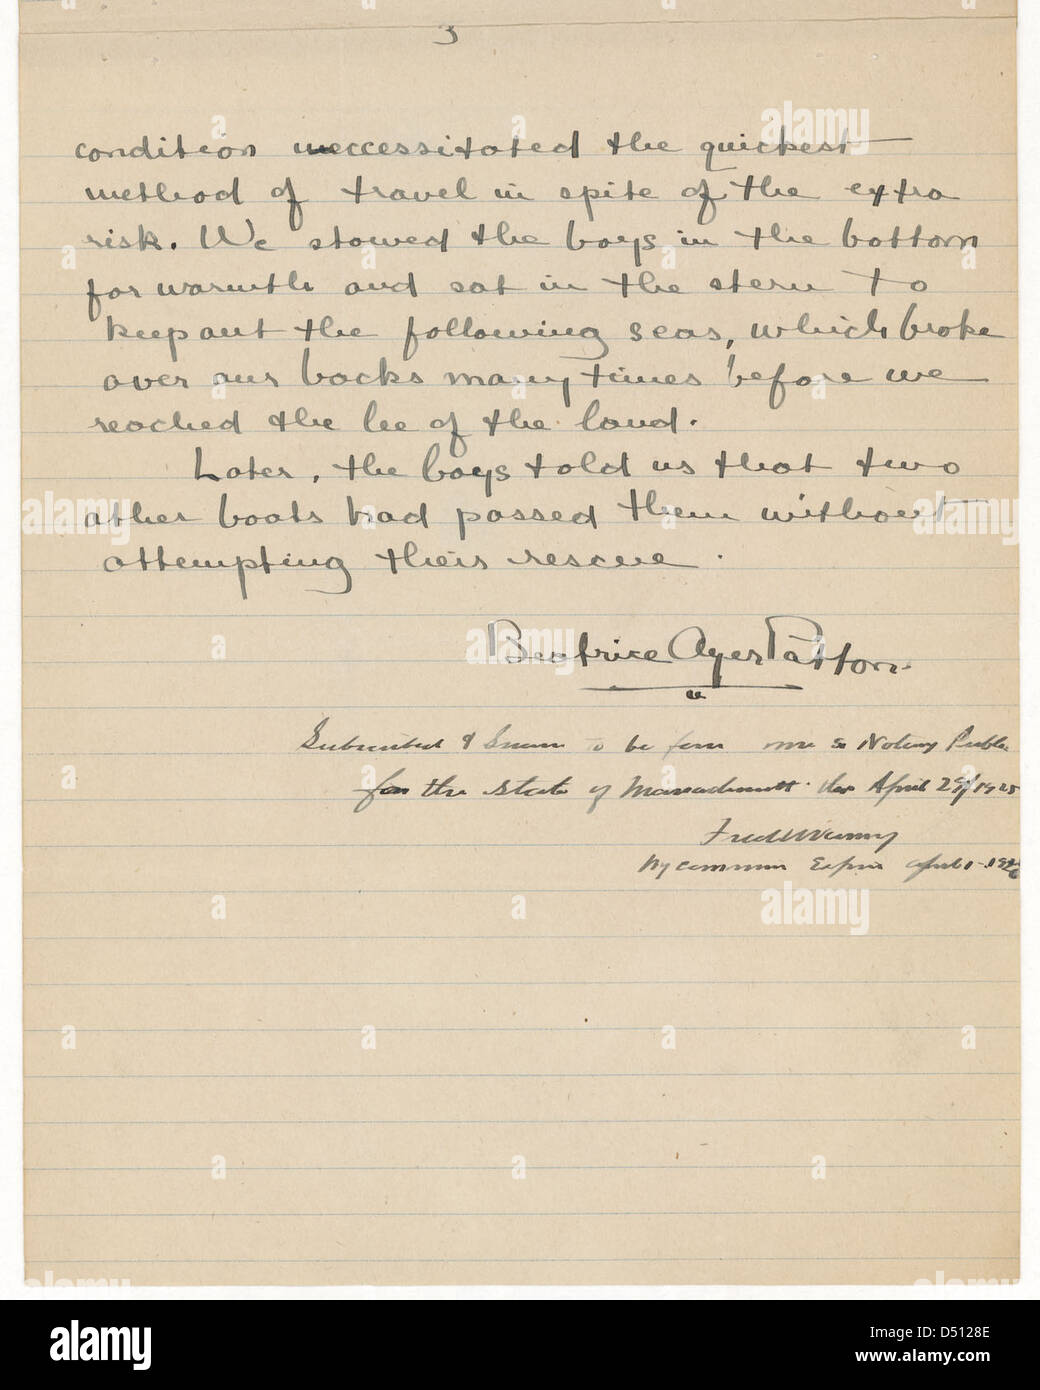 3
condition neccessitated the quickest
method of travel in spite of the extra
risk. We stowed the boys in the bottom
for warmth and sat in the stern to
keep out the following seas, which broke
over our backs many times before we
reached the lee of the land.
Later, the boys told us that two
other boats had passed them without
attempting their rescue.
Beatrice Ayer Patton.
Subscribed & Sworn to before me a Notary Public
for the State of Massachusetts this April 29/1925
My commission Expires April 1-1926
alamy
Image ID: D5128E
www.alamy.com